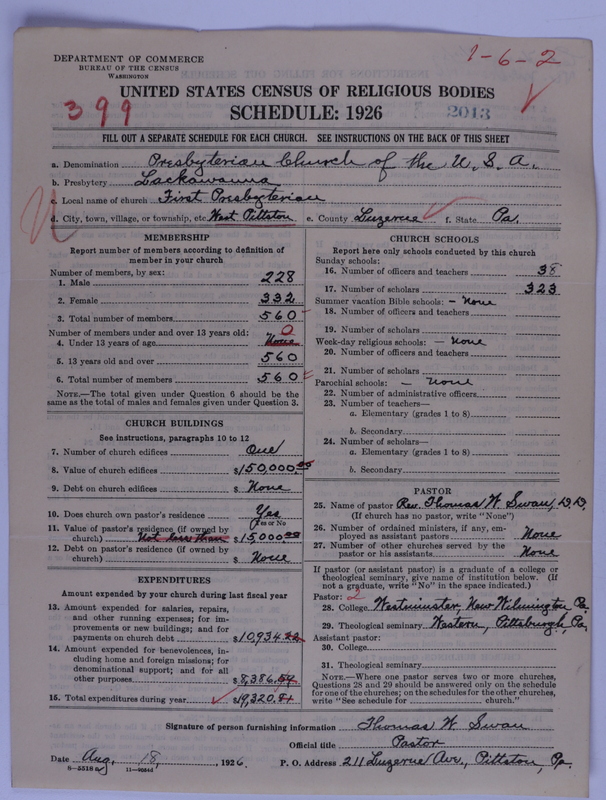 DEPARTMENT OF COMMERCE
BUREAU OF THE CENSUS
WASHINGTON
1-6-2
UNITED STATES CENSUS OF RELIGIOUS BODIES
399
SCHEDULE: 1926
2013
FILL OUT A SEPARATE SCHEDULE FOR EACH CHURCH. SEE INSTRUCTIONS ON THE BACK OF THIS SHEET
a. Denomination Presbyterian Church of the U.S.A.
b. Presbytery Lackawanna
c. Local name of church First Presbyterian
d. City, town, village, or township, etc. West Pittston e. County Luzerne f. State Pa.
MEMBERSHIP
Report number of members according to definition of
member in your church
Number of members, by sex:
1. Male 228
2. Female 332
3. Total number of members 560
Number of members under and over 13 years old:
4. Under 13 years of age None 0
5. 13 years old and over 560
6. Total number of members 560
NOTE.—The total given under Question 6 should be the
same as the total of males and females given under Question 3.
CHURCH BUILDINGS
See instructions, paragraphs 10 to 12
7. Number of church edifices One
8. Value of church edifices $150,000.00
9. Debt on church edifices $ None
10. Does church own pastor's residence Yes
(Yes or No)
11. Value of pastor's residence (if owned by
church) Not less than $15,000.00
12. Debt on pastor's residence (if owned by
church) $ None
EXPENDITURES
Amount expended by your church during last fiscal year
13. Amount expended for salaries, repairs,
and other running expenses; for im-
provements or new buildings; and for
payments on church debt $10,934.22
14. Amount expended for benevolences,
including home and foreign missions; for
denominational support; and for all
other purposes $8,386.59
15. Total expenditures during year $19,320.81
CHURCH SCHOOLS
Report here only schools conducted by this church
Sunday schools:
16. Number of officers and teachers 38
17. Number of scholars 323
Summer vacation Bible schools: - None
18. Number of officers and teachers
19. Number of scholars
Week-day religious schools: - None
20. Number of officers and teachers
21. Number of scholars
Parochial schools: - None
22. Number of administrative officers
23. Number of teachers—
a. Elementary (grades 1 to 8)
b. Secondary
24. Number of scholars—
a. Elementary (grades 1 to 8)
b. Secondary
PASTOR
25. Name of pastor Rev. Thomas W. Swan, D.D.
(If church has no pastor, write "None")
26. Number of ordained ministers, if any, em-
ployed as assistant pastors None
27. Number of other churches served by the
pastor or his assistants None
If pastor (or assistant pastor) is a graduate of a college or
theological seminary, give name of institution below. (If
not a graduate, write "No" in the space indicated.)
Pastor: 2
28. College Westminster, New Wilmington Pa.
29. Theological seminary Western, Pittsburgh, Pa.
Assistant pastor:
30. College
31. Theological seminary
NOTE.—Where one pastor serves two or more churches,
Questions 28 and 29 should be answered only on the schedule
for one of the churches; on the schedules for the other churches,
write "See schedule for church."
Signature of person furnishing information Thomas W. Swan
Official title Pastor
Date Aug. 18, 1926. P. O. Address 211 Luzerne Ave., Pittston, Pa.